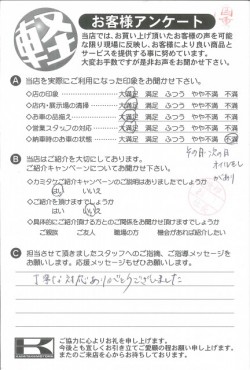 軽
お客様アンケート
当店では、お買い上げ頂いたお客様の声を可能
な限り現場に反映し、お客様により良い商品と
サービスを提供する事に努めています。
大変お手数ですが是非お声をお聞かせ下さい。
A 当店を実際にご利用になった印象をお聞かせ下さい。
◇店の印象 大満足 満足 ふつう やや不満 不満
◇店内・展示場の清掃 大満足 満足 ふつう やや不満 不満
◇お車の品揃え 大満足 満足 ふつう やや不満 不満
◇営業スタッフの対応 大満足 満足 ふつう やや不満 不満
◇納車時のお車の状態 大満足 満足 ふつう やや不満 不満
B 当店はご紹介を大切にしております。
ご紹介キャンペーンについてお聞かせ下さい。
◇カミタケご紹介キャンペーンのご説明はありましたでしょうか
はい いいえ
◇ご紹介を頂けますでしょうか
はい いいえ
◇具体的にご紹介頂ける方とのご関係をお聞かせ頂けますでしょうか
ご親族 ご友人 職場の方 機会があれば紹介したい
C 担当させて頂きましたスタッフへのご指摘、ご指導メッセージを
お願いします。応援メッセージもぜひお願いします。
丁寧な対応ありがとうございました
K
ご協力に心よりお礼を申し上げます。
今後とも宜しくお引き立てご愛顧の程お願い申し上げます。
またのご来店を心からお待ちしております。